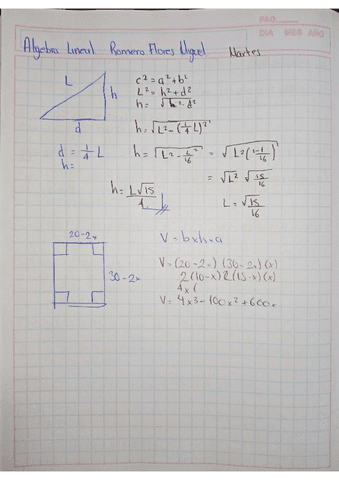 PAG.
DIA MES AÑO
Algebra Lineal Romero Flores Miguel Martes
L
h
d
c² = a² + b²
L² = h² + d²
h = √L² - d²
h = √L² - (1/4 L)²
d = 1/4 L
h =
h = √L² - L²/16 = √L² (1 - 1/16)
= √L² √15/16
h = L√15/4
L = √15/16
20-2x
30-2x
V = b x h x a
V = (20-2x) (30-2x) (x)
2(10-x) 2(15-x) (x)
4x (
V = 4x3 - 100x² + 600x